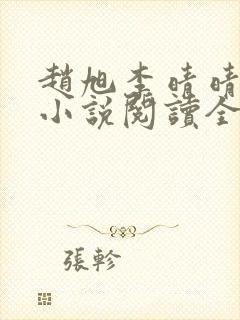 趙旭李晴晴
小説閱讀全
張軫